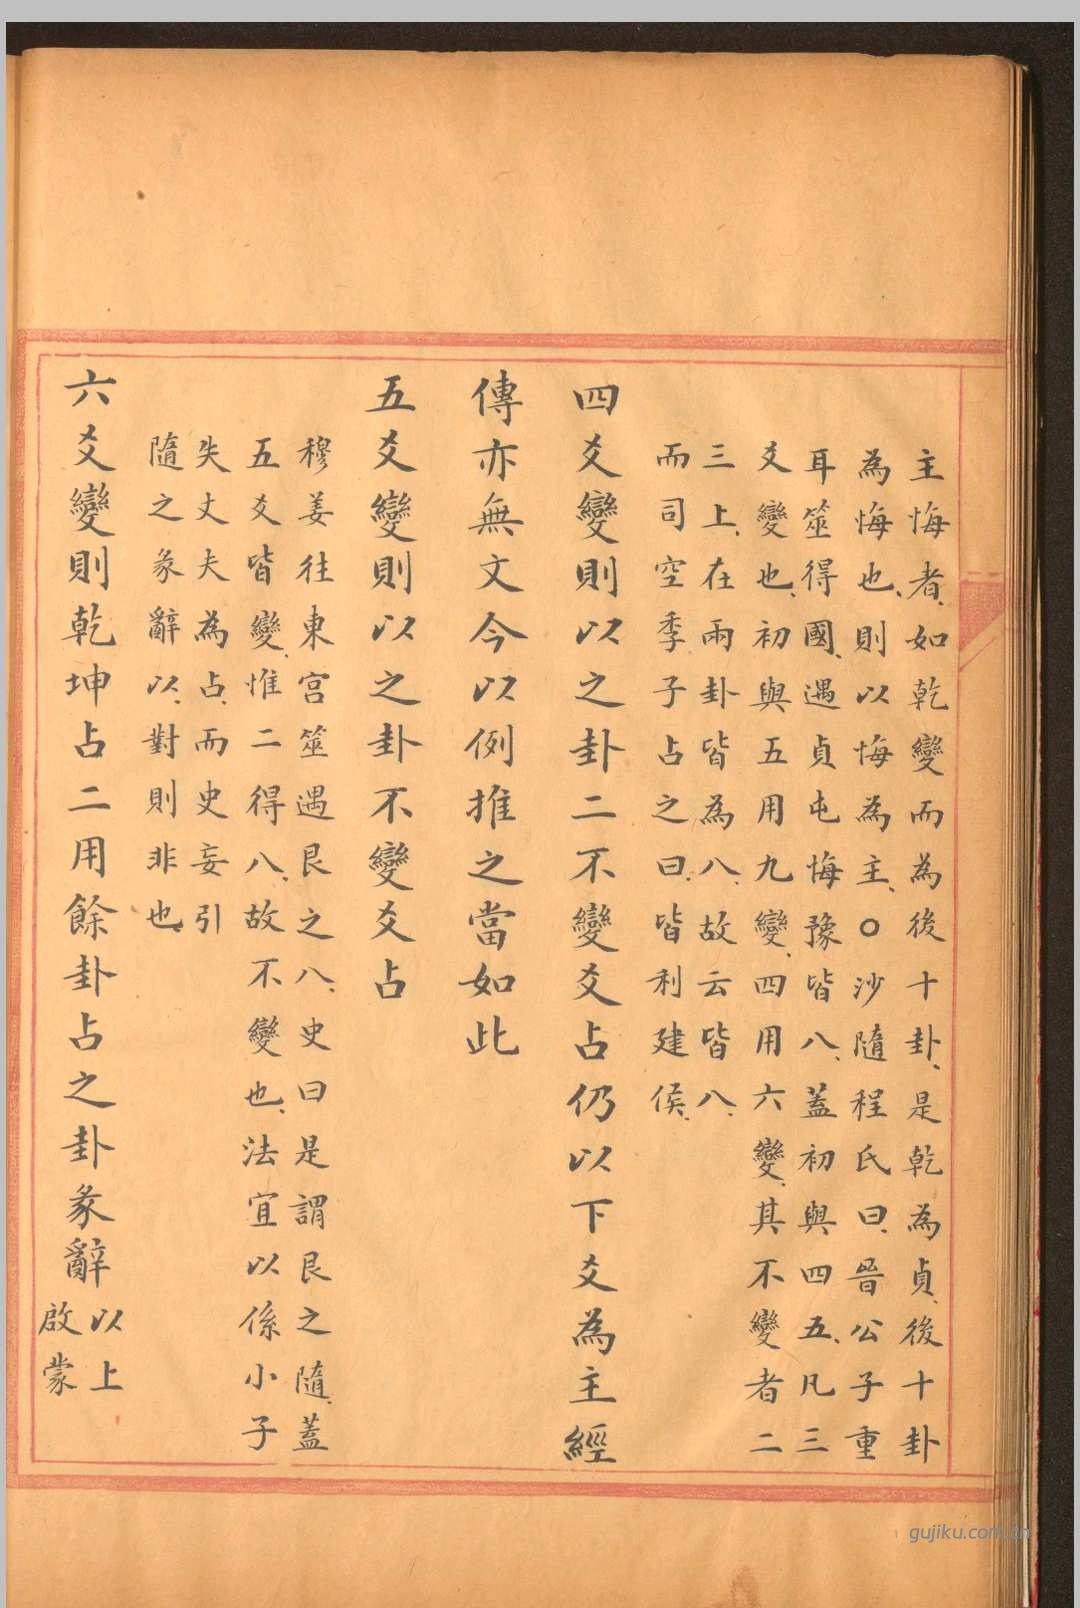 主悔者、如乾變而為後十卦、是乾為貞、後十卦
為悔也、則以悔為主、○沙隨程氏曰、晉公子重
耳筮得國、遇貞屯悔豫皆八、蓋初與四五、凡三
爻變也、初與五用九變、四用六變、其不變者二
三上、在兩卦皆為八、故云皆八、
而司空季子占之曰、皆利建侯、
四爻變則以之卦二不變爻占仍以下爻為主經
傳亦無文今以例推之當如此
五爻變則以之卦不變爻占
穆姜往東宮筮遇艮之八、史曰是謂艮之隨、蓋
五爻皆變、惟二得八、故不變也、法宜以係小子
失丈夫為占、而史妄引
隨之彖辭以、對則非也、
六爻變則乾坤占二用餘卦占之卦彖辭以上
啟蒙
gujiku.com.cn